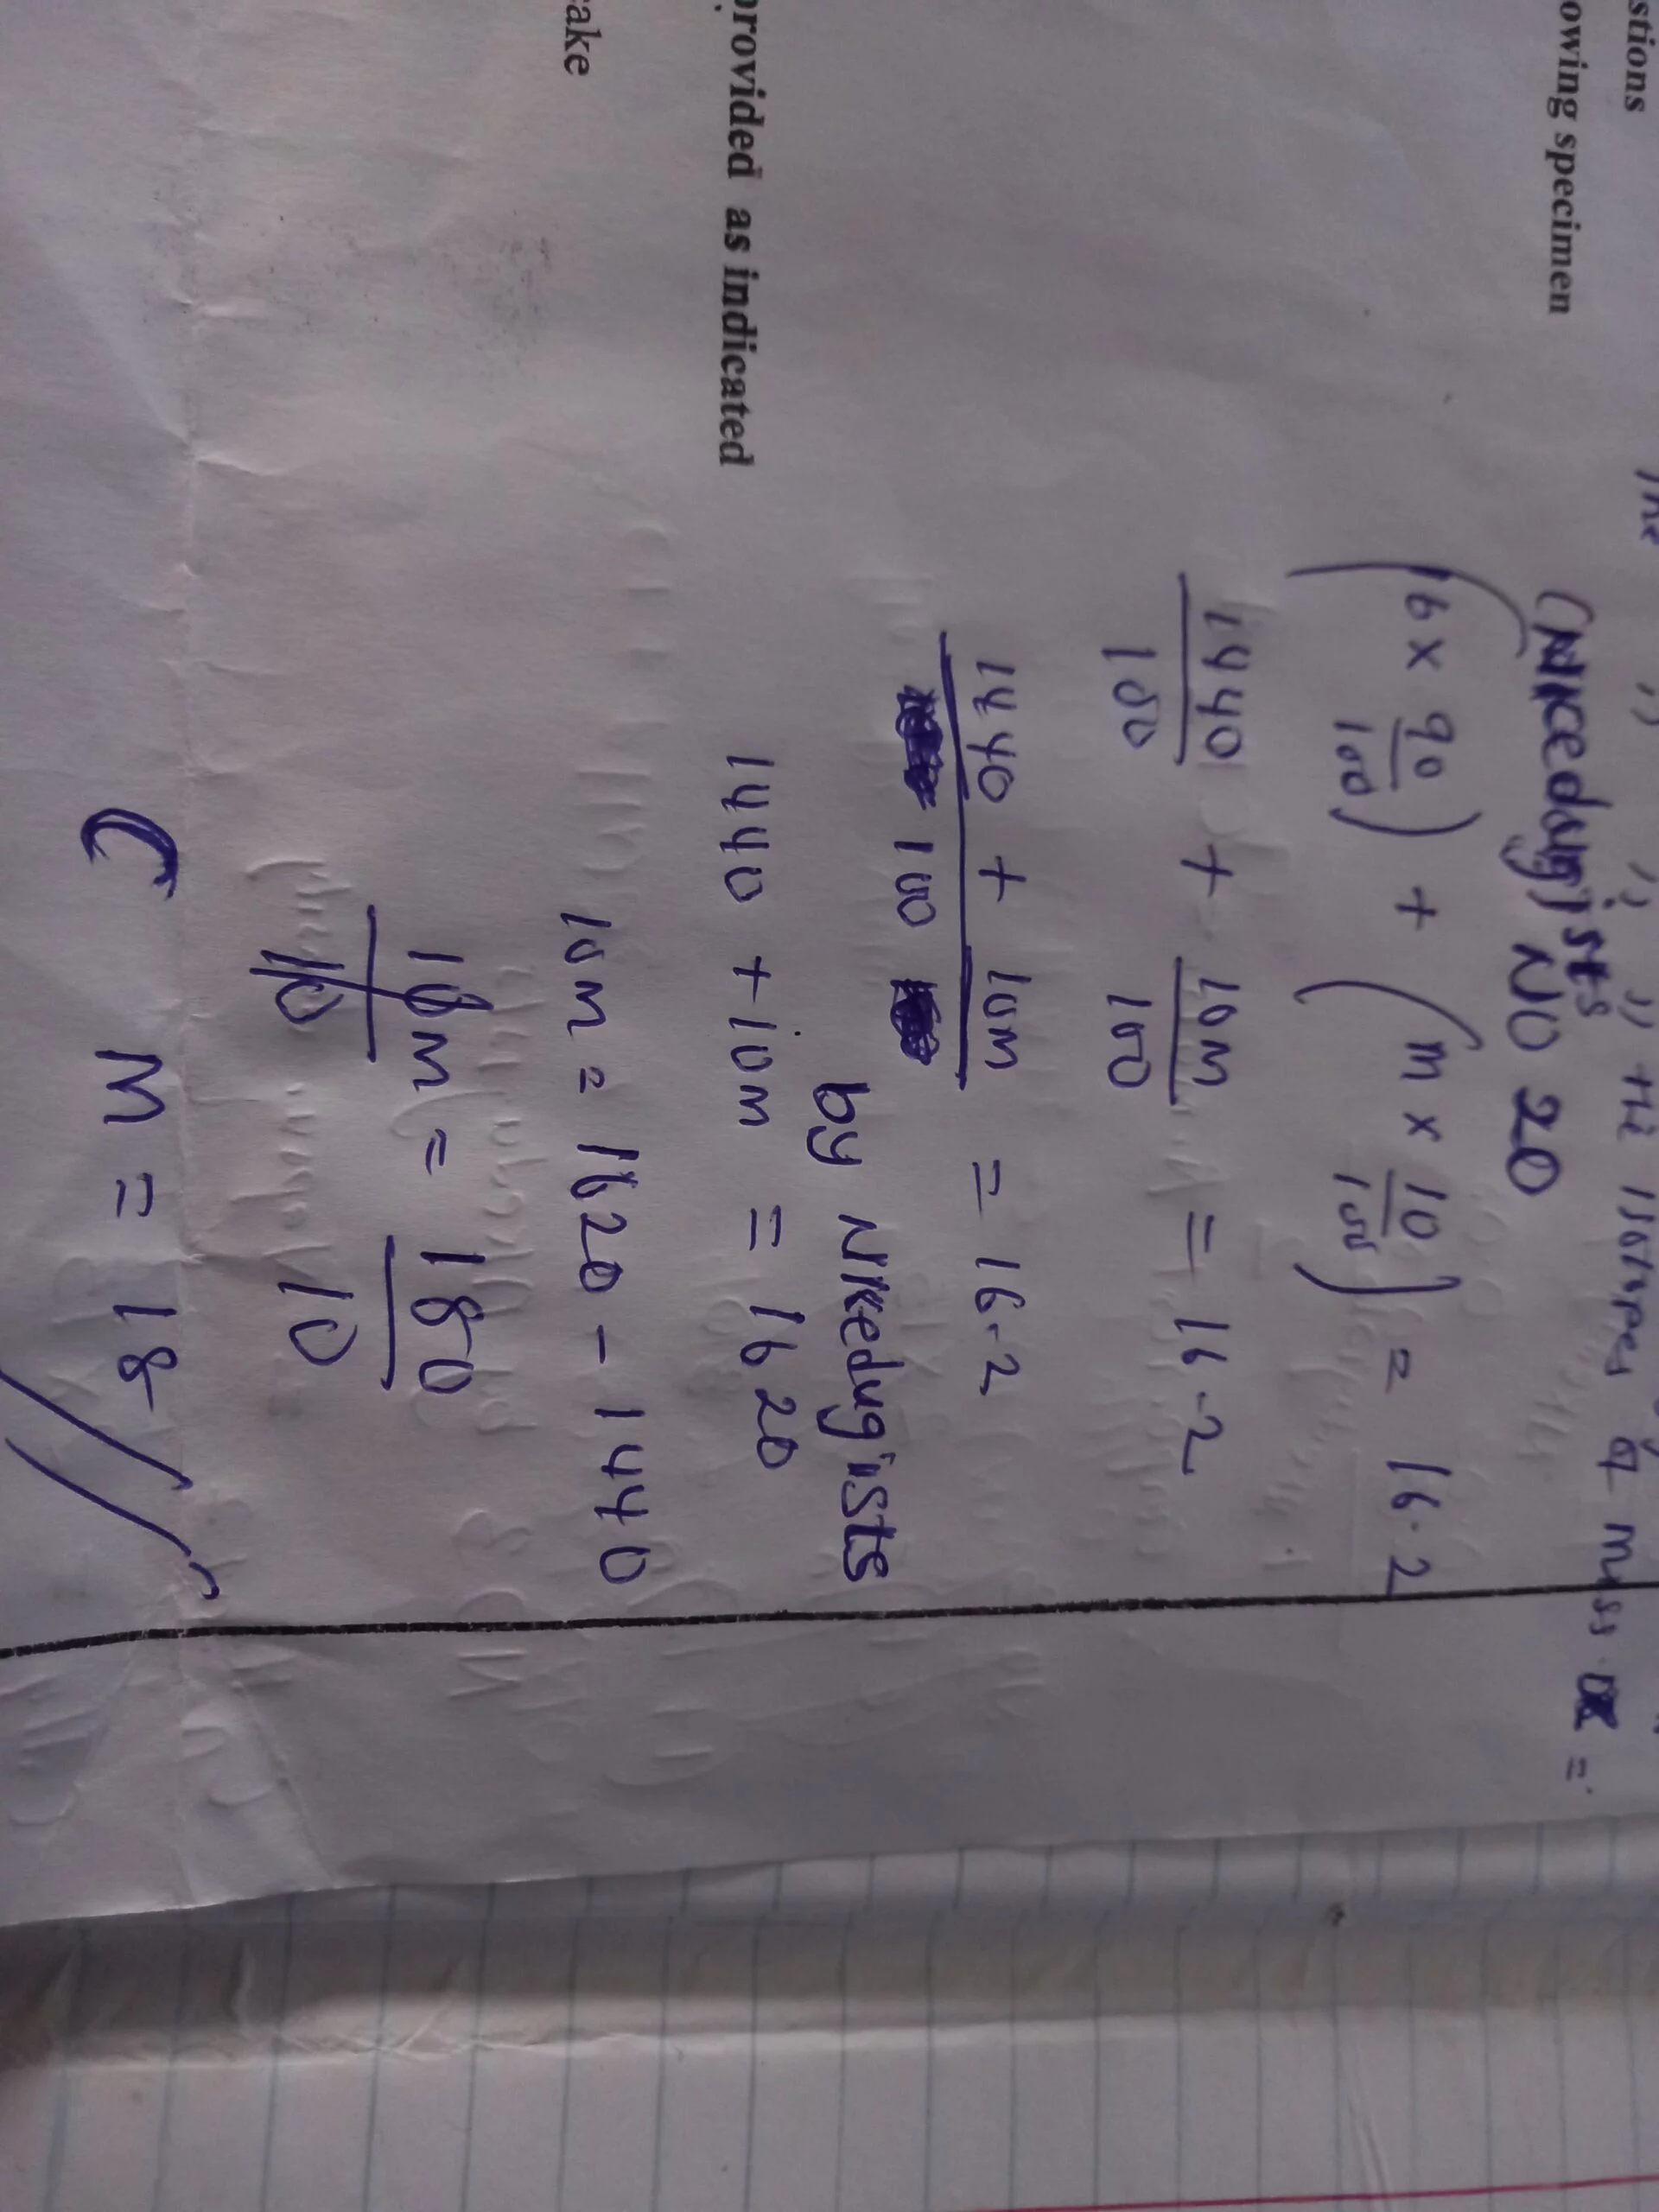 stions
owing specimen
provided as indicated
ake
The
,, ,, ,, the isotopes of mass =
(Nicedugists NO 20
(16 x 90/100) + (m x 10/100) = 16.2
1440/100 + 10m/100 = 16.2
1440 + 10m / 100 = 16.2
by Nicedugists
1440 + 10m = 1620
10m = 1620 - 1440
10m/10 = 180/10
C M = 18